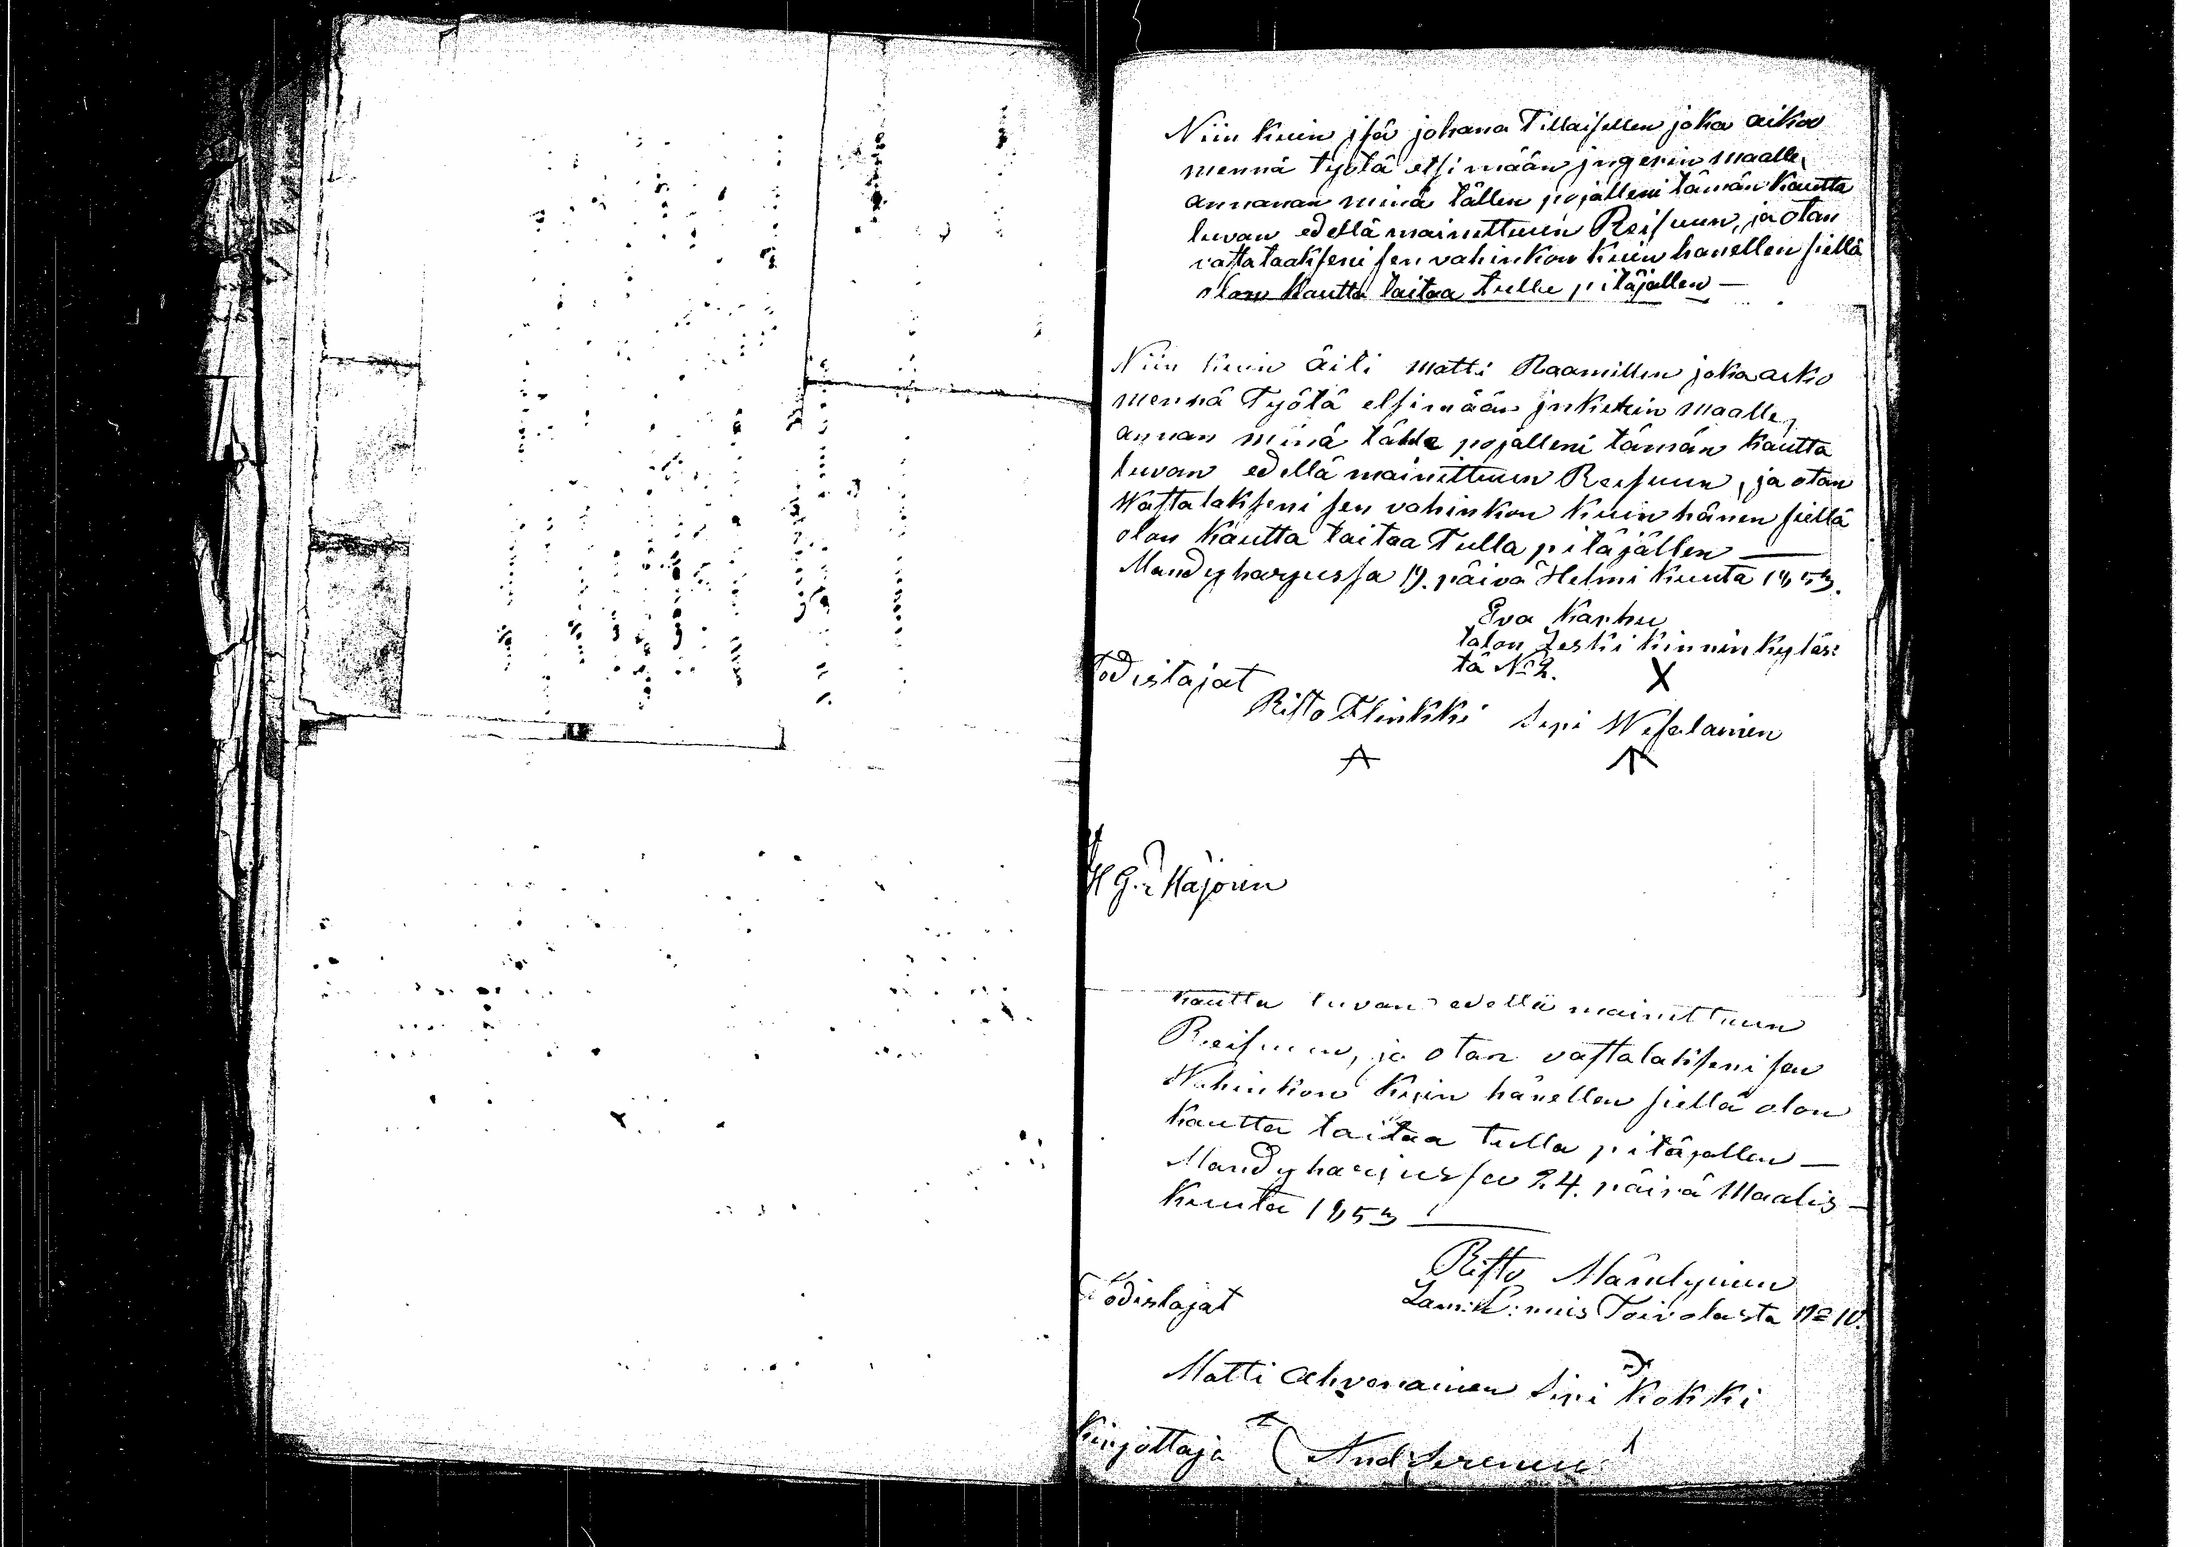 Niin kuin isä johana Tillaisellen joka aikoo
mennä työtä etsimään jngerin maalle,
annanan minä tällen pojalleni tämän kautta
luvan edellä mainittuun Reisuun, ja otan
vastataakseni sen vahinkon kuin hanellen siellä
olon kautta taitaa tulla pitäjällen —
Niin kuin äiti matti Raamillen joka aiko
mennä Työtä etsimään jnkerin maalle,
annan minä tälle pojalleni tämän kautta
luvan edellä mainittuun Reisuun, ja otan
Wastalakseni sen vahinkon kuin hänen siellä
olon kautta taitaa Tulla pitäjällen —
Mandyharjussa 19. päivä Helmi kuuta 1853.
Eva Karhu
talon Leski Kinnin kyläs:
tä No 2. X
Todistajat
Risto Flinkki Sipi Wesalainen
H G. Majorin
kautta luvan edellä mainittuun
Reisuun, ja otan vastalakseni sen
Wahinkon kuin hänellen siellä olon
kautta taitaa tulla pitäjallen —
Mandyharjussa 24. päivä Maalis-
kuuta 1853
Risto Mändynen
Lam: mies Toivolasta No 10.
Todistajat
Matti Ahvonainen Sipi Kokki
Kirjottaja And: